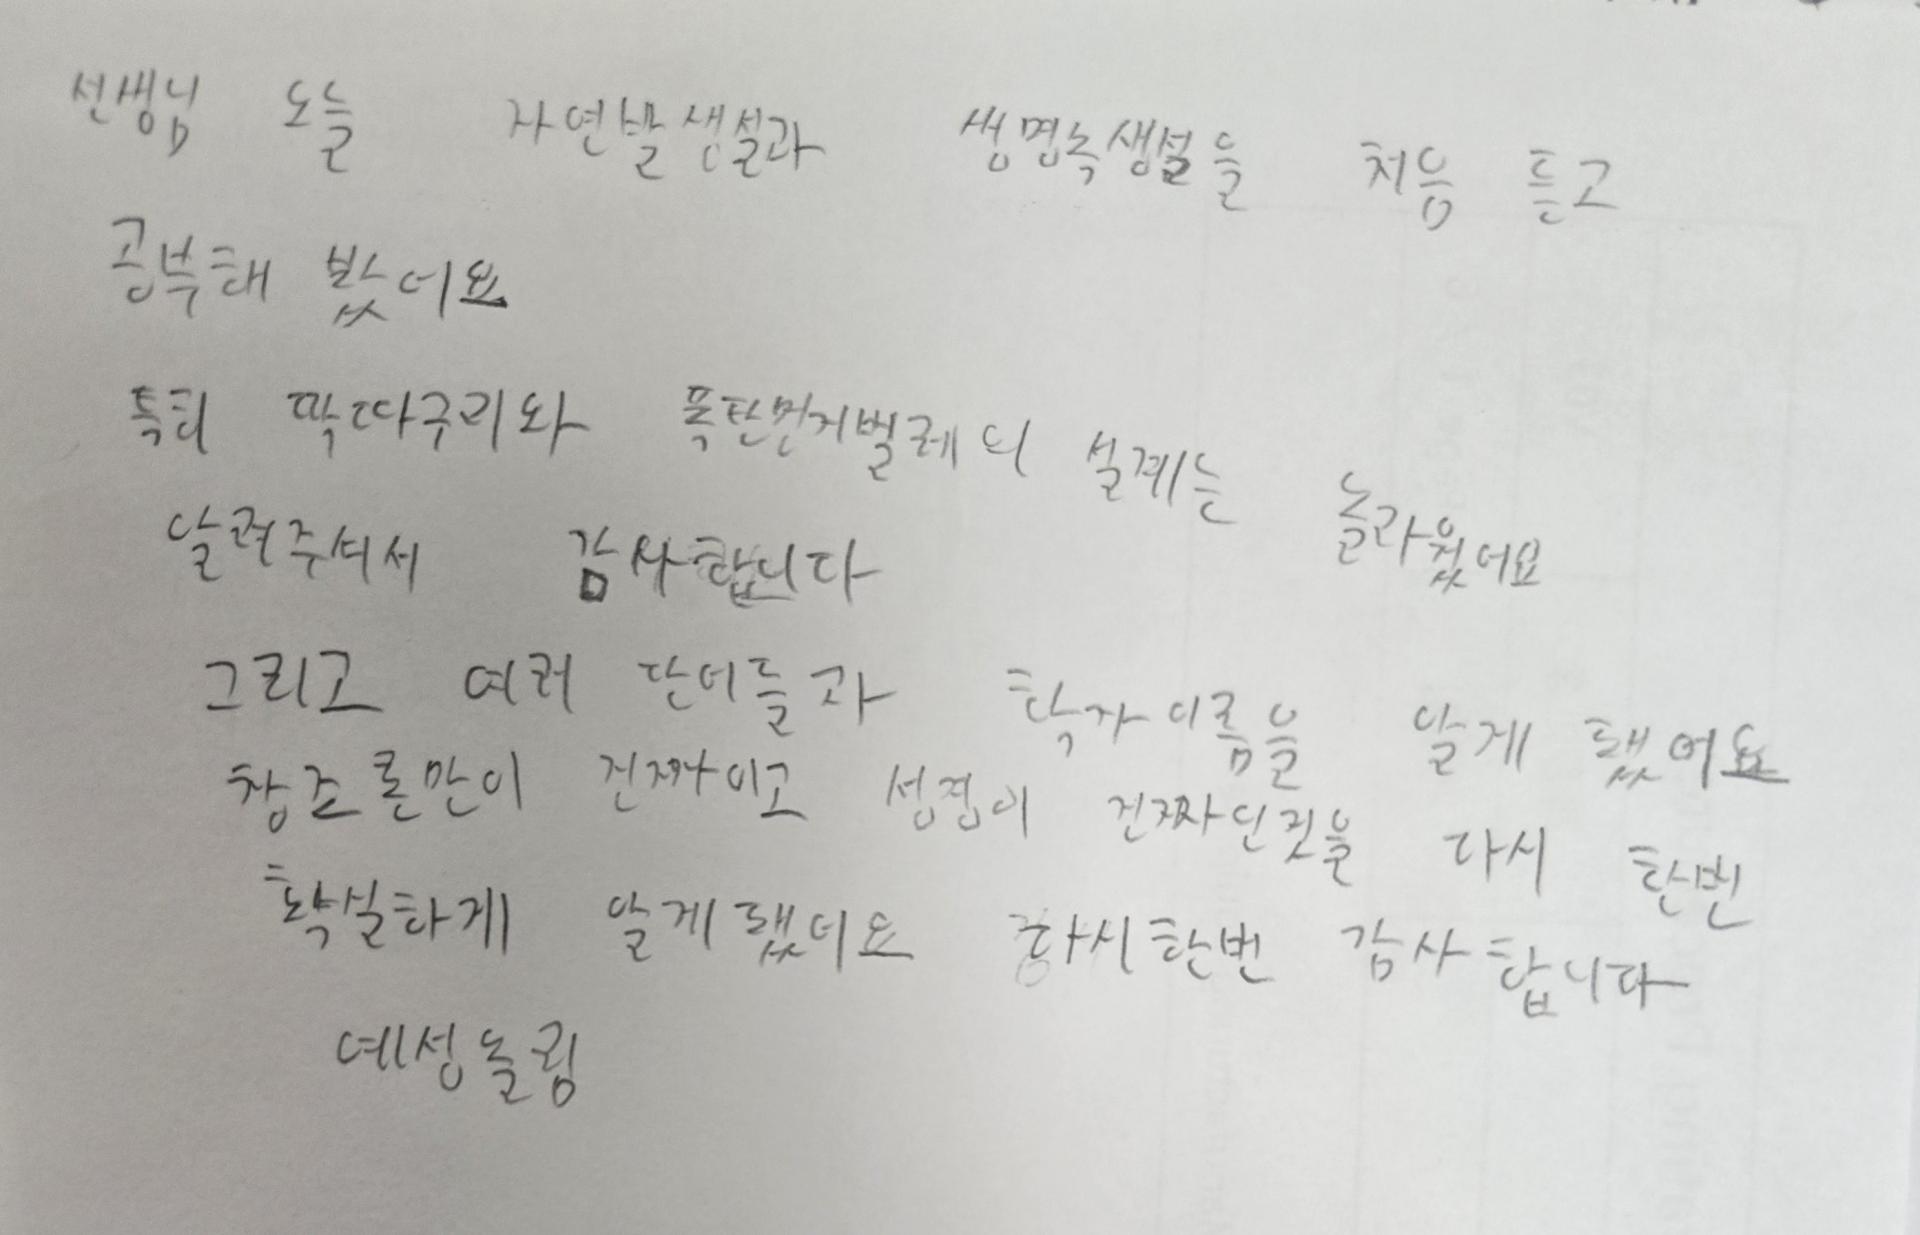 선생님 오늘 자연발생설과 생명속생설을 처음 듣고
공부해 봤어요
특히 딱따구리와 폭탄먼지벌레의 설계는 놀라웠어요
알려주셔서 감사합니다
그리고 여러 단어들과 학자이름을 알게 됐어요
창조론만이 진짜이고 성경이 진짜인것을 다시 한번
확실하게 알게됐어요 다시한번 감사합니다
예성올림